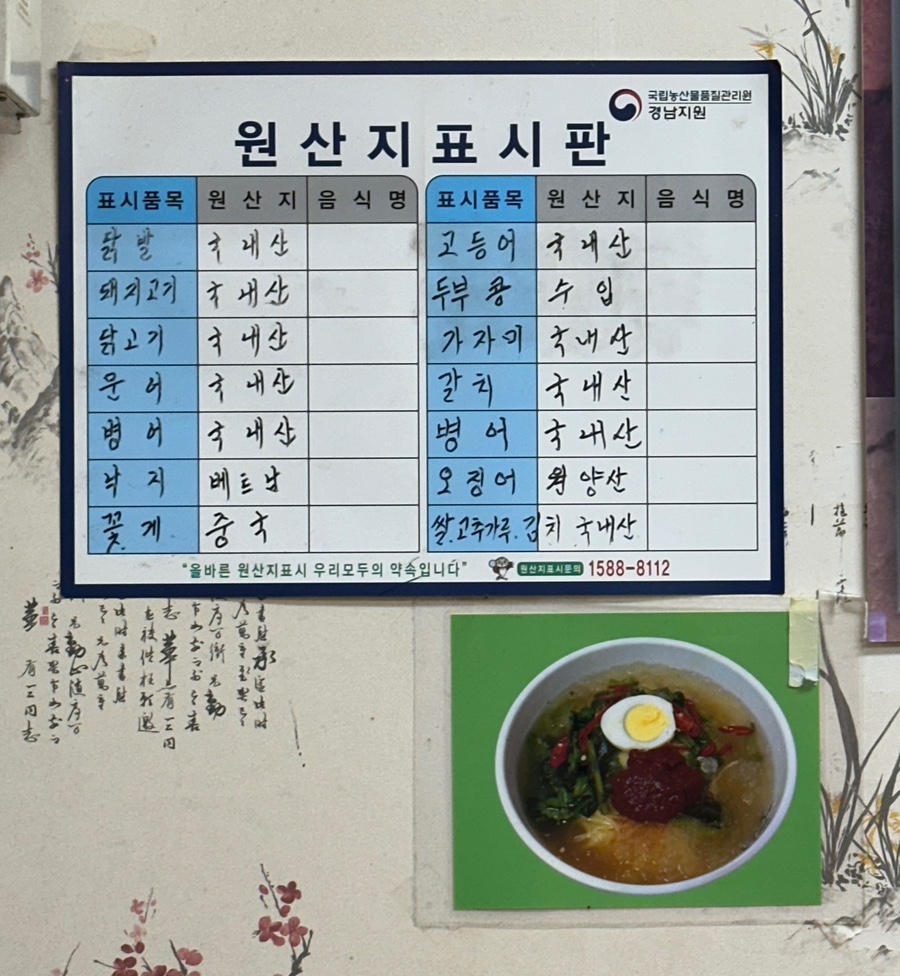 국립농산물품질관리원
경남지원
원산지표시판
표시품목 원산지 음식명 표시품목 원산지 음식명
닭발 국내산 고등어 국내산
돼지고기 국내산 두부콩 수입
닭고기 국내산 가자미 국내산
문어 국내산 갈치 국내산
병어 국내산 병어 국내산
낙지 베트남 오징어 원양산
꽃게 중국 쌀.고추가루.김치 국내산
"올바른 원산지표시 우리모두의 약속입니다" 원산지표시문의 1588-8112